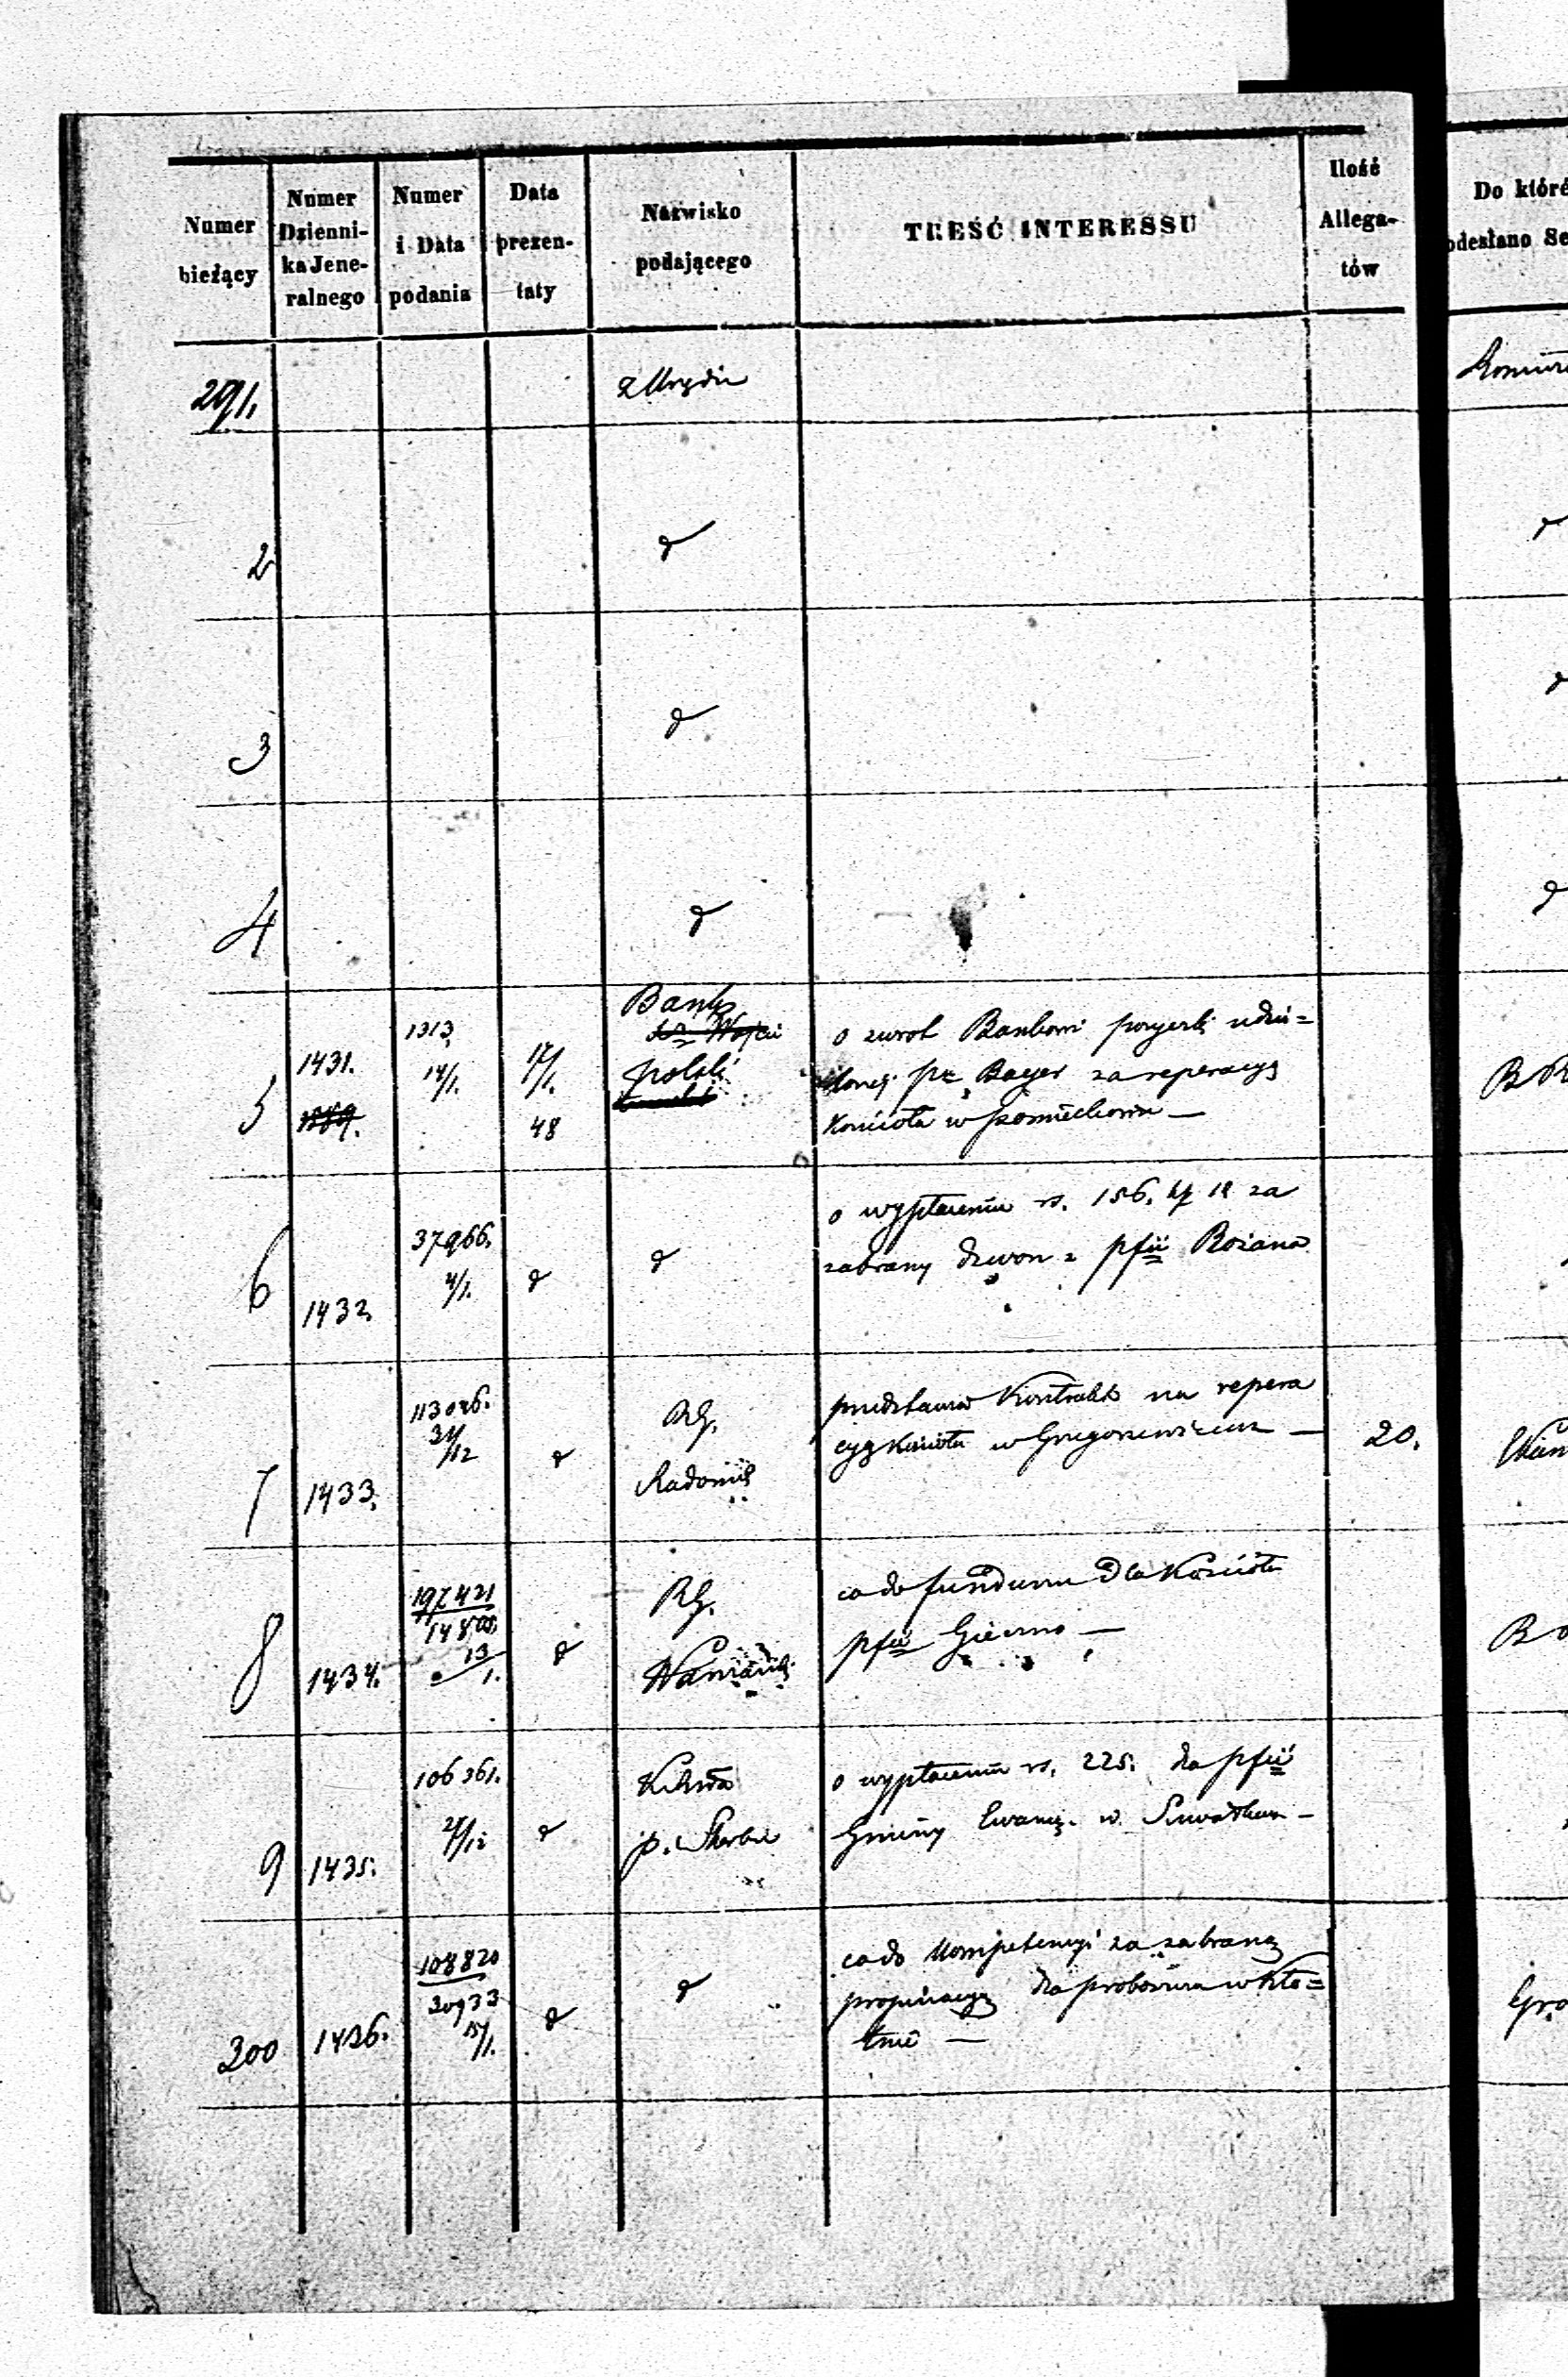 Numer
bieżący
Numer
Dzienni-
ka Jene-
ralnego
Numer
i Data
podania
Data
prezen-
taty
Nazwisko
podającego
TREŚĆ INTERESSU
Ilość
Allega-
tów
Do któré
odesłano Se
291.
z Urzędu
2
d
3
d
4
d
5
1431.
1313,
14/1.
17/1.
48
Bank
polski
o zwrot Bankowi pożyczki udzie=
lonej pz Bayer za reperacyą
Kościoła w pomiechowie —
6
1432.
37966.
4/1.
d
d
o wypłacenie rs. 156. kp 12 za
zabrany dzwon z pfii Rożana
7
1433.
113026.
31/12
d
RG.
Radomski
przedstawia Kontrakt na repera
cyą Kościoła w Gregorzewicach —
20.
8
1434.
197421
14800.
13/1.
d
RG.
co do funduszu dla Kościoła
pfii Gieczno —
B
9
1435.
106361.
27/12
d
p. Skarbu
o wypłacenie rs. 225. dla pfii
Gminy Ewang. w Suwałkach —
300
1436.
108820
20933
15/1.
d
d
co do Kompetencyi za zabraną
propinacyą dla proboszcza w Kło=
tnie —
Gro